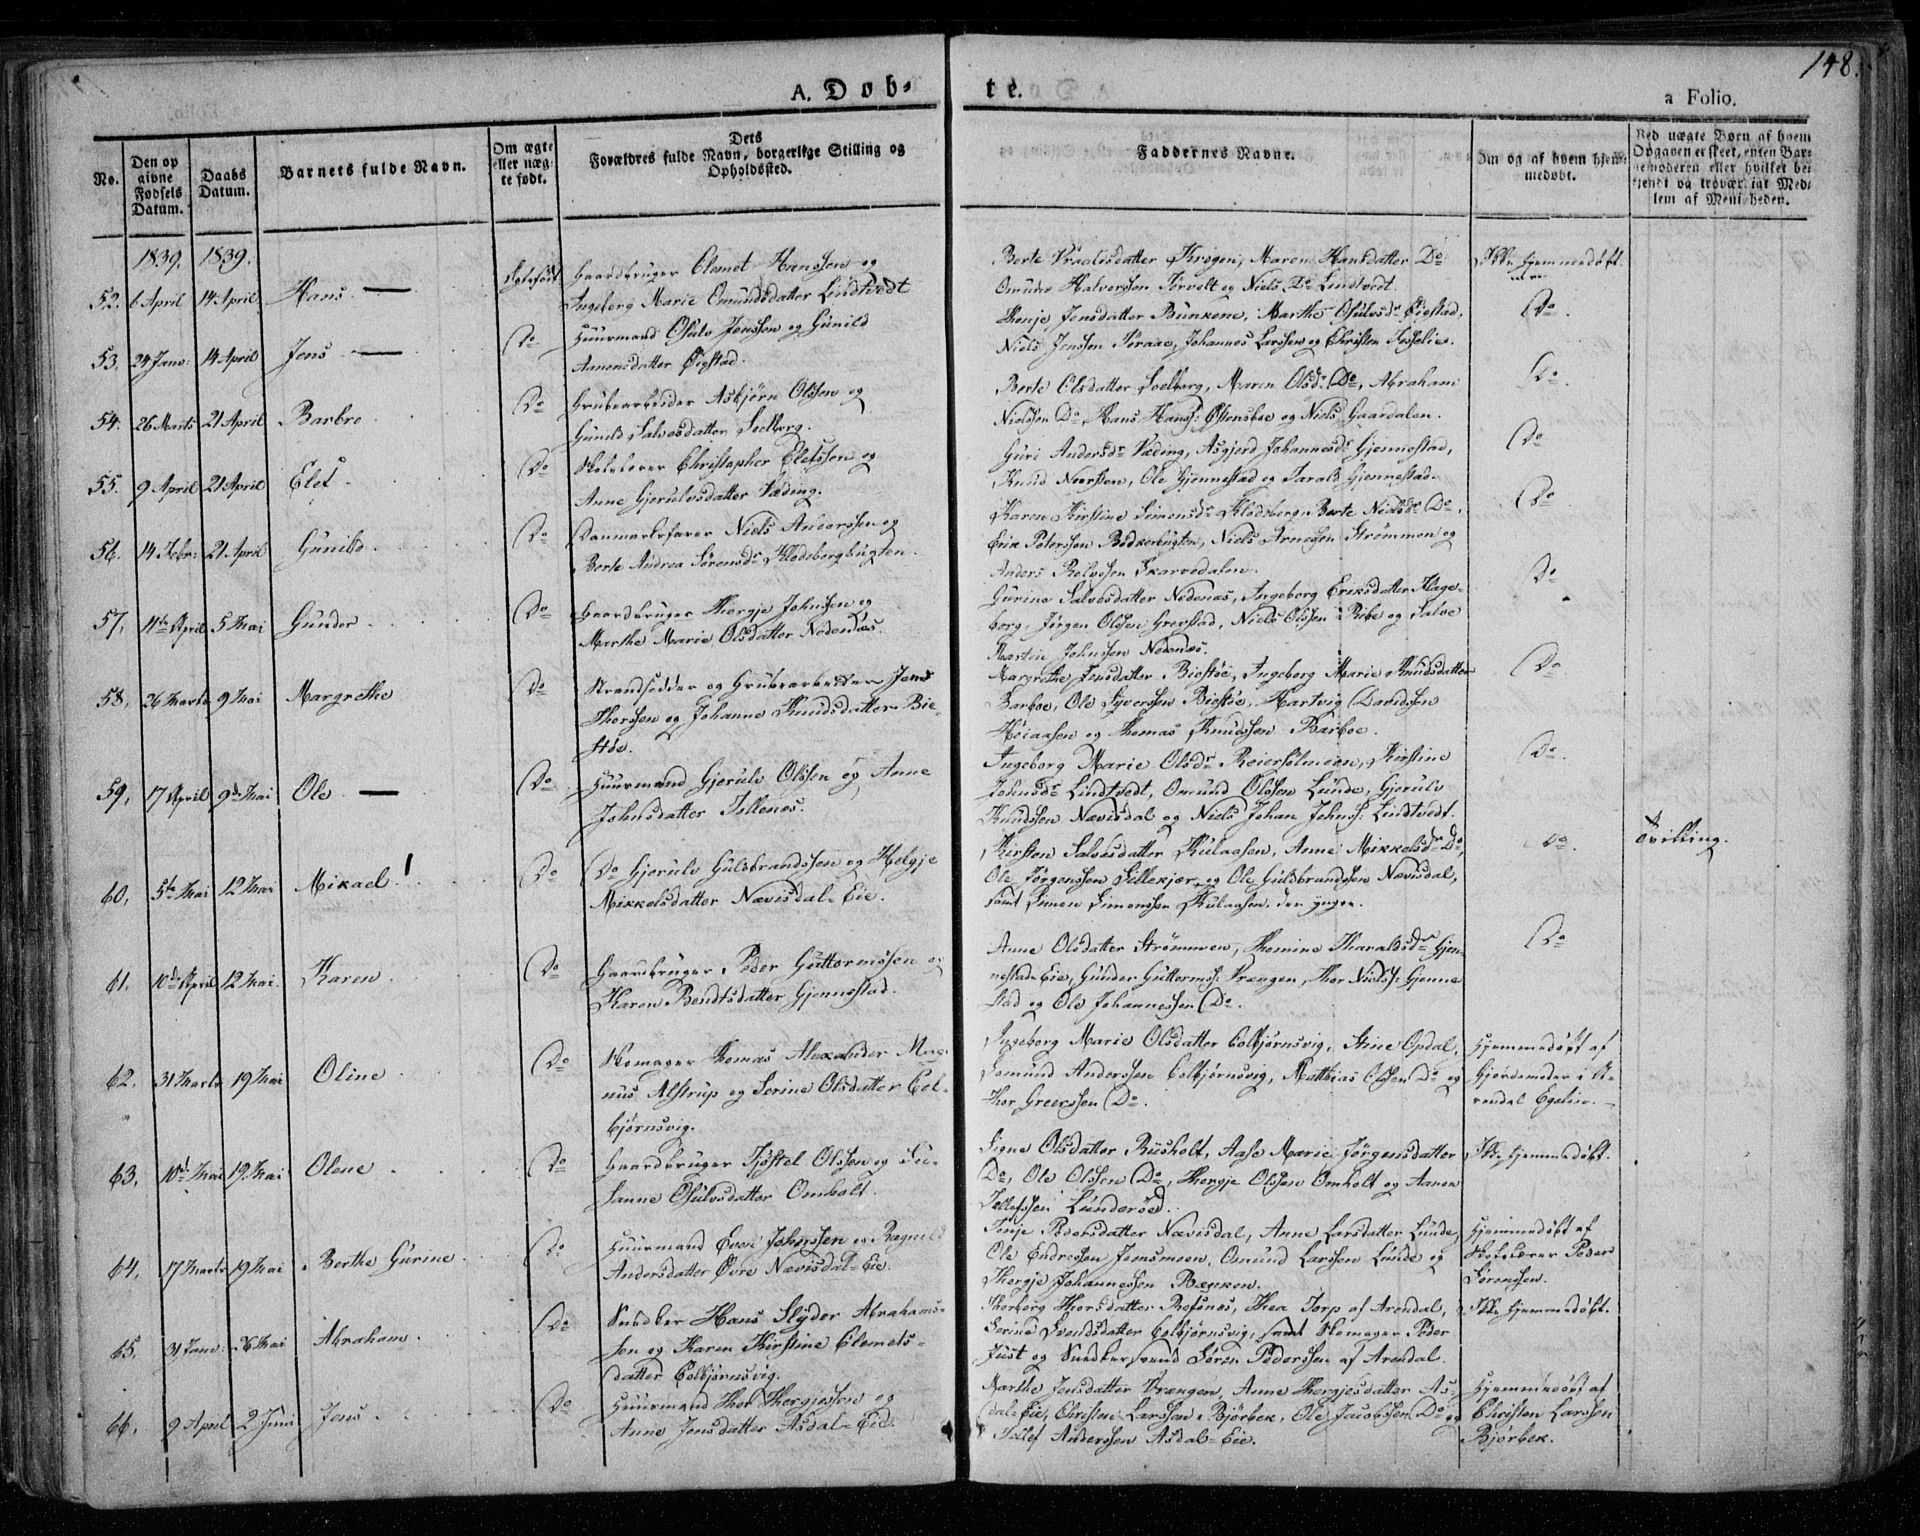 148.
A. Døb-
te.
a Folio.
No.
Den op
givne
Fødsels
Datum.
Daabs
Datum.
Barnets fulde Navn.
Om ægte
eller uæg-
te født.
Dets
Forældres fulde Navn, borgerlige Stilling og
Opholdssted.
Faddernes Navne.
Om og af hvem hjem-
medøbt.
Ved uægte Børn af hvem
Opgaven er skeet, enten Bar-
nemoderen eller hvilket be-
kjendt og troværdigt Med-
lem af Menigheden.
1839. 1839.
52. 6 April 14 April Hans Ægtefødt
Gaardbruger Clemet Hanssen og
Ingeborg Marie Omundsdatter Lindtvedt
Berte Krogen, Maren Hansdatter Do
Omund Halvorssen og Niels Do Lindtvedt.
Ikke hjemmedøbt.
53. 24 Janr: 14 April Jens Do
Huusmand Osulv Jenssen og Gunild
Aanensdatter Øigstad.
Jensdatter Bunkene, Marthe Osulvsdr Øiestad,
Niels Jenssen Johannes Larssen og Christen
Do.
54. 26 Marts 21 April Barbro Do
Grubearbeider Asbjørn Olssen og
Gunild Salvesdatter Solberg.
Berte Olsdatter Soelberg, Maren Olsdr Do, Abraham
Nielssen Do, Hans Hanss: Østensboe og Niels Gaardalen.
Do.
55. 9 April 21 April Elef Do
Christopher Elefssen og
Anne Gjerulvsdatter Væding.
Guri Andersdr Væding, Asgjerd Johannesdr Gjennestad,
Knud Neersten, Ole Gjennestad og Tarald Gjennestad.
Do
56. 14 Febr: 21 April Gunild. Do
Danmarksfarer Niels Anderssen og
Berte Andrea Sørensdr Kloddebergbugten.
Karen Kirstine Simonsdr Klodeberg, Berte Nielsdr Do,
Erik Peterssen Bødkerbugten, Niels Arnesen Strømmen og
Anders Skarvedalen.
Do
57, 11te April 5 Mai Gunder Do
Gaardbruger Thorgje Johnssen og
Marthe Marie Olsdatter Nedenæs.
Gurine Salvesdatter Nedenæs, Ingeborg Eriksdatter Klage-
borg, Jørgen Olssen Grevstad, Niels Olssen Ribe og Salve
Martin Johnssen Nedenæs.
Do
58, 26 Marts 9 Mai Margrethe Do
Strandsidder og Grubearbeider Jens
Thorssen og Johanne Knudsdatter Bie-
støe.
Margrethe Jensdatter Biestøe, Ingeborg Marie Knudsdatter
Barboe, Ole Syverssen Biestøe, Hartvig Davidssen
Høiaasen og Thomas Knudssen Barboe.
Do
59, 17 April 9de Mai Ole Do
Huusmand Gjerulv Olssen og Anne
Johnsdatter Tellenes.
Ingeborg Marie Olsdr Reiersølmoen, Kirstine
Johnsdr Lindtvedt, Omund Olssen Lunde, Gjerulv
Knudssen Nævisdal og Niels Johan Johnss: Lindtvedt.
Do.
60, 5te Mai 12 Mai Mikael. Do
Do Gjerulv Guldbrandssen og Helgje
Mikkelsdatter Nævisdal-Eie.
Kirsten Salvesdatter Kulaasen, Anne Mikkelsdr Do,
Ole Jørgenssen Sillekjær, og Ole Guldbrandssen Nævisdal,
samt Simon Simonssen Kulaasen den yngre.
Do.
Tvilling.
61, 10de April 12 Mai. Karen. Do
Gaardbruger Peder Guttormssen og
Karen Bendtsdatter Gjennestad.
Anne Olsdatter Strømmen, Thomine Tharaldsdr Gjen-
nestad-Eie, Gunder Guttormss: Vrængen, Thor Nielss: Gjenne
stad og Ole Johannessen Do.
Do
62. 31 Marts 19 Mai Oline Do
Skomager Thomas Alexander Mag-
nus Alstrup og Serine Olsdatter Col-
bjørnsvig.
Ingeborg Marie Olsdatter Colbjørnsvig, Stine Opdal,
Somund Anderssen Colbjørnsvig, Matthias Olssen Do og
Thor Greerssen Do.
Hjemmedøbt af
Gjordemoder i A-
rendal
63. 10de Mai 19 Mai Olene Do
Gaardbruger Tjøstel Olssen og Su-
sanne Osulvsdatter Omholt.
Signe Olsdatter Rusholt, Aase Marie Jørgensdatter
Do, Ole Olssen Do, Thorgje Olssen Omholt og Aanon
Tellefssen Lunderød.
Ikke hjemmedøbt.
64, 17 Marts 19 Mai Berthe Gurine Do
Huusmand Even Johnssen og Ragnild
Andersdatter Øvre Nævisdal-Eie.
Tonje Pedersdatter Nævisdal, Anne Larsdatter Lunde,
Ole Endressen Jensmoen, Omund Larssen Lunde og
Thorgje Johannessen Bænken.
Hjemmedøbt af
Skolelærer Peder
Sørenssen.
65. 31 Janr: 26 Mai Abraham Do
Snedker Hans Slyder Abrahams-
sen og Karen Kirstine Clemets-
datter Colbjørnsvig.
Thorborg Thorsdatter Refsnes, Thea Torp af Arendal,
Serine Svendsdatter Colbjørnsvig, samt Skomager Peder
Just og Snedkersvend Søren Pederssen af Arendal.
Ikke hjemmedøbt.
66, 9 April 2 Juni Jens Do
Huusmand Thor Thorgjessen og
Anne Jensdatter Asdal-Eie.
Marthe Jensdatter Vrængen, Anne Thorgjesdatter As-
dal-Eie, Christen Larssen Bjørbek, Ole Jacobssen Do og
Tellef Anderssen Asdal-Eie.
Hjemmedøbt af
Christen Larssen
Bjørbek.